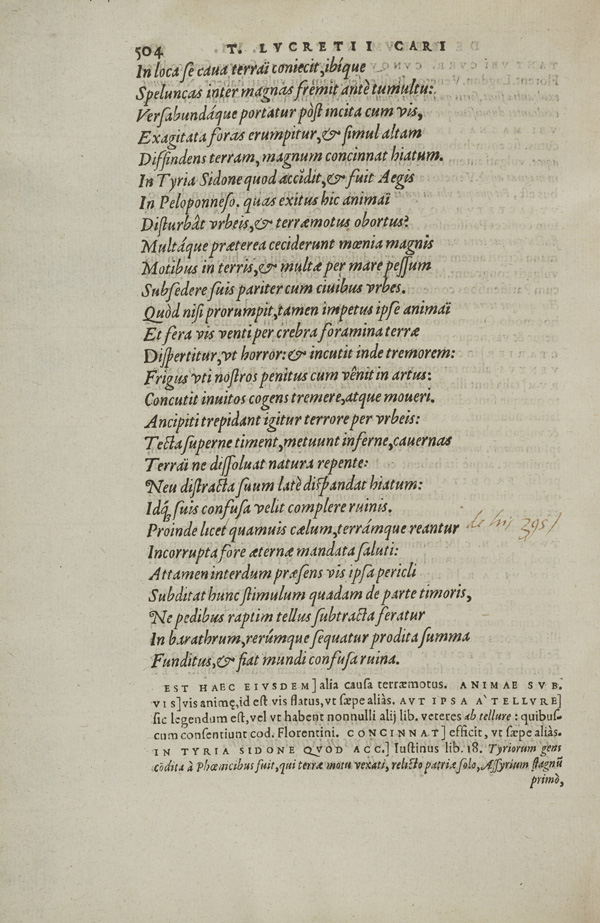 504 T. LVCRETII CARI
In loca se caua terraï coniecit, ibíque
Speluncas inter magnas fremit antè tumultu:
Versabundáque portatur pòst incita cum vis,
Exagitata foras erumpitur, & simul altam
Diffindens terram, magnum concinnat hiatum.
In Tyria Sidone quod accidit, & fuit Aegis
In Peloponneso. quas exitus hic animaï
Disturbât vrbeis, & terræmotus obortus?
Multáque præterea ceciderunt mœnia magnis
Motibus in terris, & multæ per mare pessum
Subsedere suis pariter cum ciuibus vrbes.
Quòd nisi prorumpit, tamen impetus ipse animaï
Et fera vis venti per crebra foramina terræ
Dispertitur, vt horror: & incutit inde tremorem:
Frigus vti nostros penitus cum vênit in artus:
Concutit inuitos cogens tremere, atque moueri.
Ancipiti trepidant igitur terrore per vrbeis:
Tecta superne timent, metuunt inferne, cauernas
Terraï ne dissoluat natura repente:
Neu distracta suum latè dispandat hiatum:
Idq; suis confusa velit complere ruinis.
Proinde licet quamuis cælum, terrámque reantur de his 395/
Incorrupta fore æternæ mandata saluti:
Attamen interdum præsens vis ipsa pericli
Subditat hunc stimulum quadam de parte timoris,
Ne pedibus raptim tellus subtracta feratur
In barathrum, rerúmque sequatur prodita summa
Funditus, & fiat mundi confusa ruina.
EST HAEC EIVSDEM] alia causa terræmotus. ANIMAE SVB.
VIS] vis animę, id est vis flatus, vt sæpe aliàs. AVT IPSA A` TELLVRE]
sic legendum est, vel vt habent nonnulli alij lib. veteres ab tellure : quibus-
cum consentiunt cod. Florentini. CONCINNAT] efficit, vt sæpe aliàs.
IN TYRIA SIDONE QVOD ACC.] Iustinus lib. 18. Tyriorum gens
cōdita à Phœnicibus fuit, qui terræ motu vexati, relicto patriæ solo, Assyrium stagnū
primò,